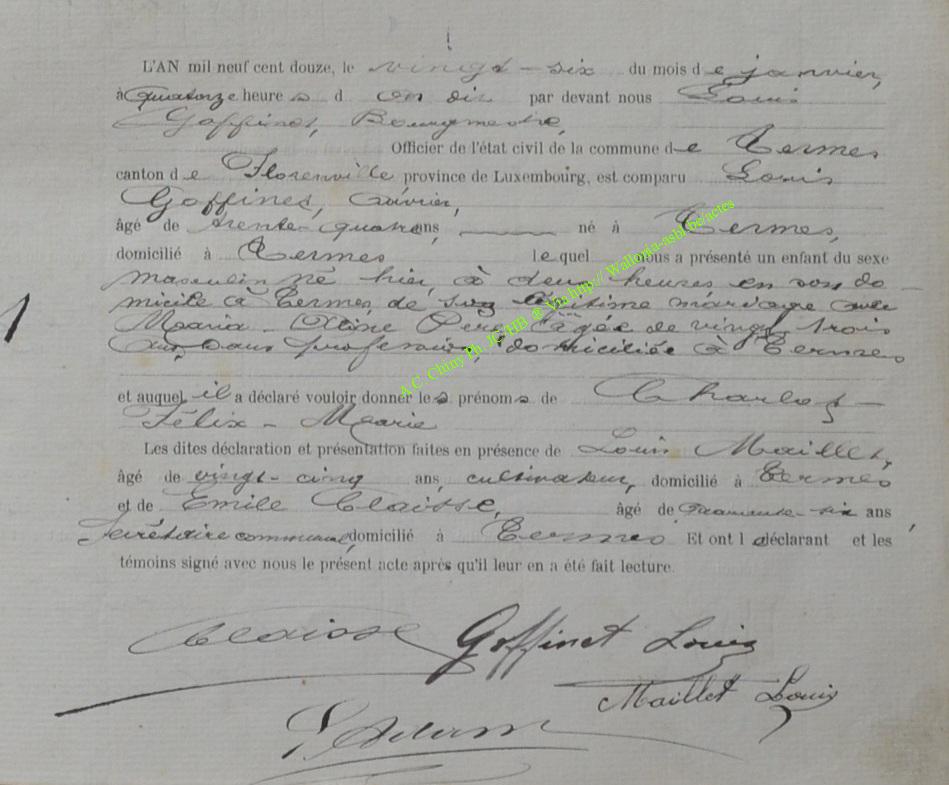 L'AN mil neuf cent douze, le vingt-six du mois de janvier,
à quatorze heures d par devant nous Louis
Goffinet, Bourgmestre,
Officier de l'état civil de la commune de Termes
canton de Florenville province de Luxembourg, est comparu Louis
Goffinet, ouvrier,
âgé de trente-quatre ans, né à Termes,
domicilié à Termes lequel nous a présenté un enfant du sexe
masculin né hier, à deux heures en son do
micile à Termes, de son légitime mariage avec
Maria-Céline âgée de vingt-trois
ans, sans profession, domiciliée à Termes
et auquel il a déclaré vouloir donner les prénoms de Charles-
Félix-Marie
Les dites déclaration et présentation faites en présence de Louis Maillet,
âgé de vingt-cinq ans, cultivateur, domicilié à Termes
et de Emile Claisse, âgé de quarante-six ans,
Secrétaire communal, domicilié à Termes. Et ont l déclarant et les
témoins signé avec nous le présent acte après qu'il leur en a été fait lecture.
Claisse Goffinet Louis
Maillet Louis
Adam
A.C. Chiny Ph. JC HB & Via http:// Wallonia-asbl.be/actes
1